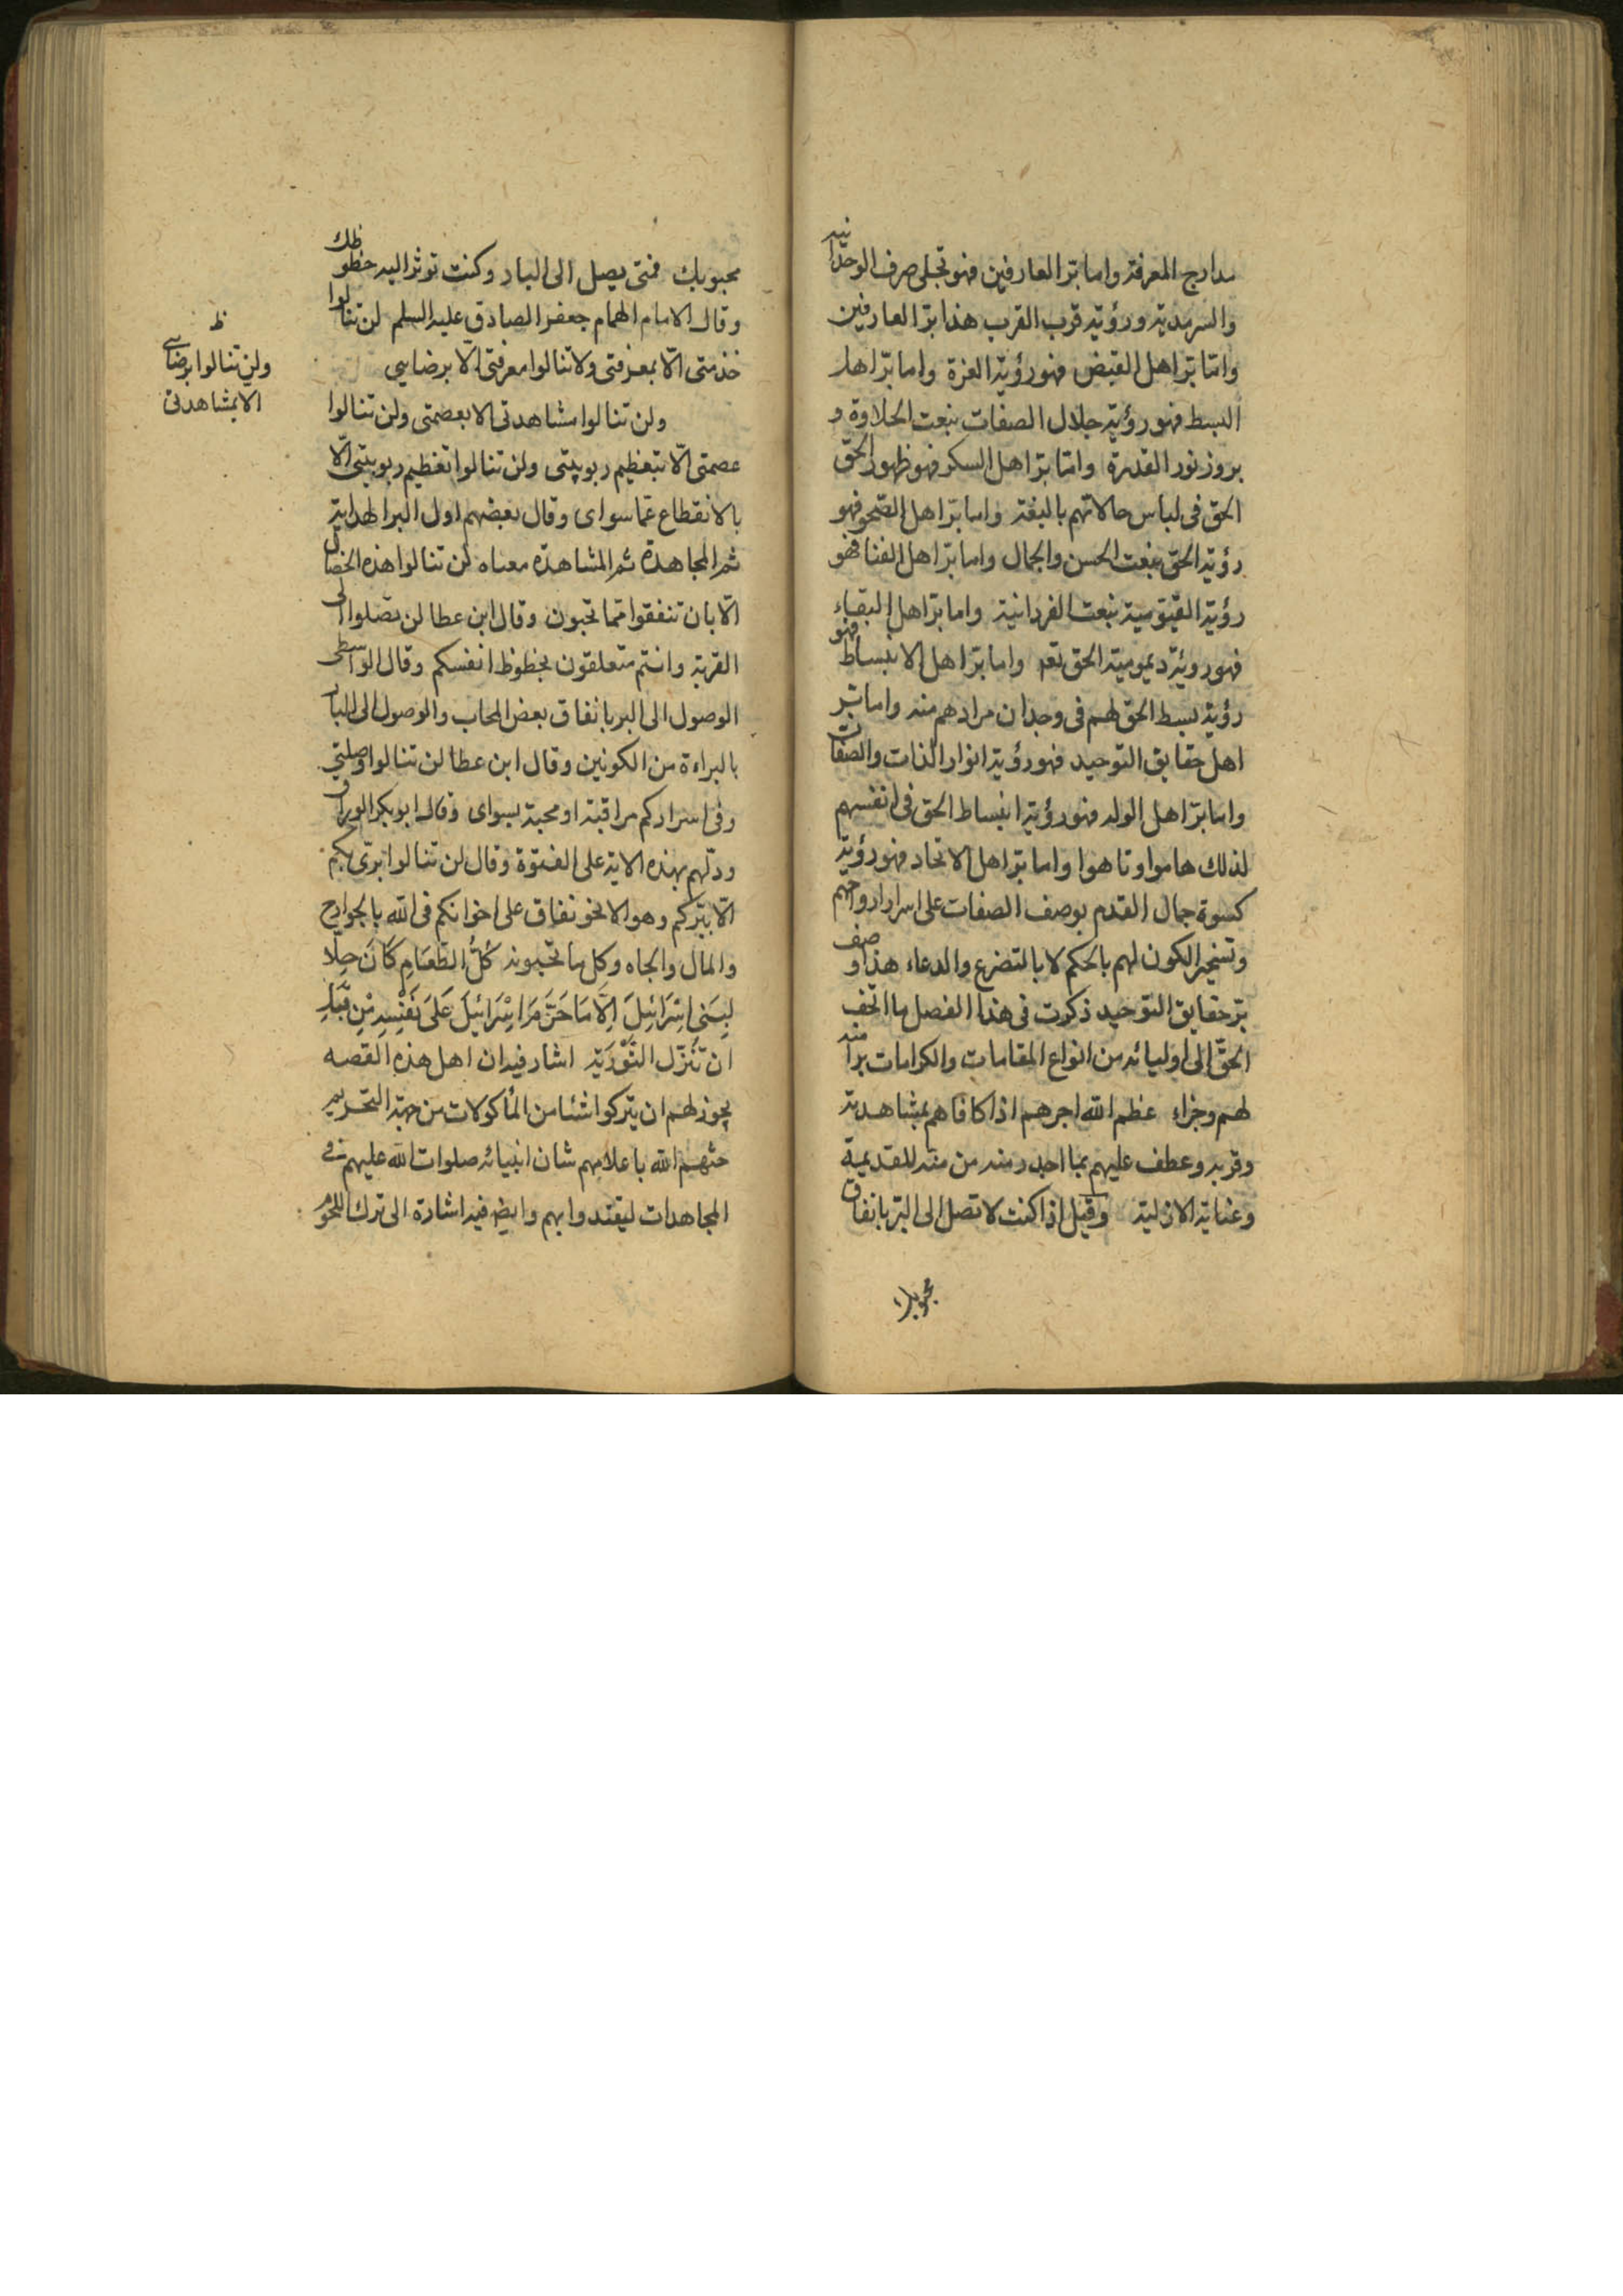 مدارج المعرفة واما بر العارفين فهو تجلى صرف الوحدانية
والسرمدية ورؤية قرب القرب هذا بر العارفين
واما بر اهل القبض فهو رؤية العزة واما بر اهل
البسط فهو رؤية جلال الصفات بنعت الحلاوة و
بروز نور القدرة واما بر اهل السكر فهو ظهور الحق
الحق فى لباس حالاتهم بالبغته واما بر اهل الصحو فهو
رؤية الحق بنعت الحسن والجمال واما بر اهل الفنا فهو
رؤية القيومية بنعت الفردانية واما بر اهل البقاء
فهو روئة ديمومية الحق تعه واما بر اهل الانبساط فهو
رؤية بسط الحق لهم فى وجدان مرادهم منه واما بر
اهل حقايق التوحيد فهو رؤية انوار الذات والصفات
واما بر اهل الوله فهو رؤية انبساط الحق فى انفسهم
لذلك هاموا وتاهوا واما بر اهل الاتحاد فهو رؤية
كسوة جمال القدم بوصف الصفات على اسرار ارواحهم
وتسخير الكون لهم بالحكم لا بالتضرع والدعاء هذا وصف
بر حقايق التوحيد ذكرت فى هذا الفصل ما اتحف
الحق الى اوليائه من انواع المقامات والكرامات برا منه
لهم وجزاء عظم الله اجرهم اذا كافاهم بمشاهدته
وقربه وعطف عليهم بما اجدر منه من منه للقديمية
وعناية الازلية وقيل اذا كنت لا تصل الى البر بانفاق
محبوبك
محبوبك فمتى يصل الى البار وكنت توثر اليه حظوظك
وقال الامام الهمام جعفر الصادق عليه السلم لن تنالوا
خدمتى الا بمعرفتى ولا تنالوا معرفتى الا برضايي
ولن تنالوا مشاهدتى الا بعصمتى ولن تنالوا
عصمتى الا بتعظيم ربوبيتى ولن تنالوا تعظيم ربوبيتى الا
بالانقطاع عما سواى وقال بعضهم اول البر الهداية
ثم المجاهدة ثم المشاهدة معناه لن تنالوا هذه الخصال
الا بان تنفقوا مما تحبون وقال ابن عطا لن تصلوا الى
القربة وانتم متعلقون بحظوظ انفسكم وقال الواسطى
الوصول الى البر بانفاق بعض المحاب والوصول الى البار
بالبراءة من الكونين وقال ابن عطا لن تنالوا وصلتى
وفى اسراركم مراقبة او محبة بسواى وقال ابو بكر الوراق
ودلهم بهذه الاية على الفتوة وقال لن تنالوا برى بكم
الا ببركم وهو الاخو نفاق على اخوانكم فى الله بالجوارح
والمال والجاه وكل ما تحبونه كُلُّ الطَّعَامِ كَانَ حِلًّا
لِبَنِى اِسْرَائِلَ اِلَّا مَا حَرَّمَ اِسْرَائِيلَ عَلَى نَفْسِهِ مِنْ قَبْلِ
ان تُنَزَّل التَّوْرَيٰة اشار فيه ان اهل هذه القصه
يجوز لهم ان يتركوا شئا من المأكولات من جهة التحريم
حثهم الله باعلامهم شان انبيائه صلوات الله عليهم فى
المجاهدات ليقتدوا بهم وايض فيه اشارة الى ترك اللحوم
ظ
ولن تنالوا برضايي
الا بمشاهدتى